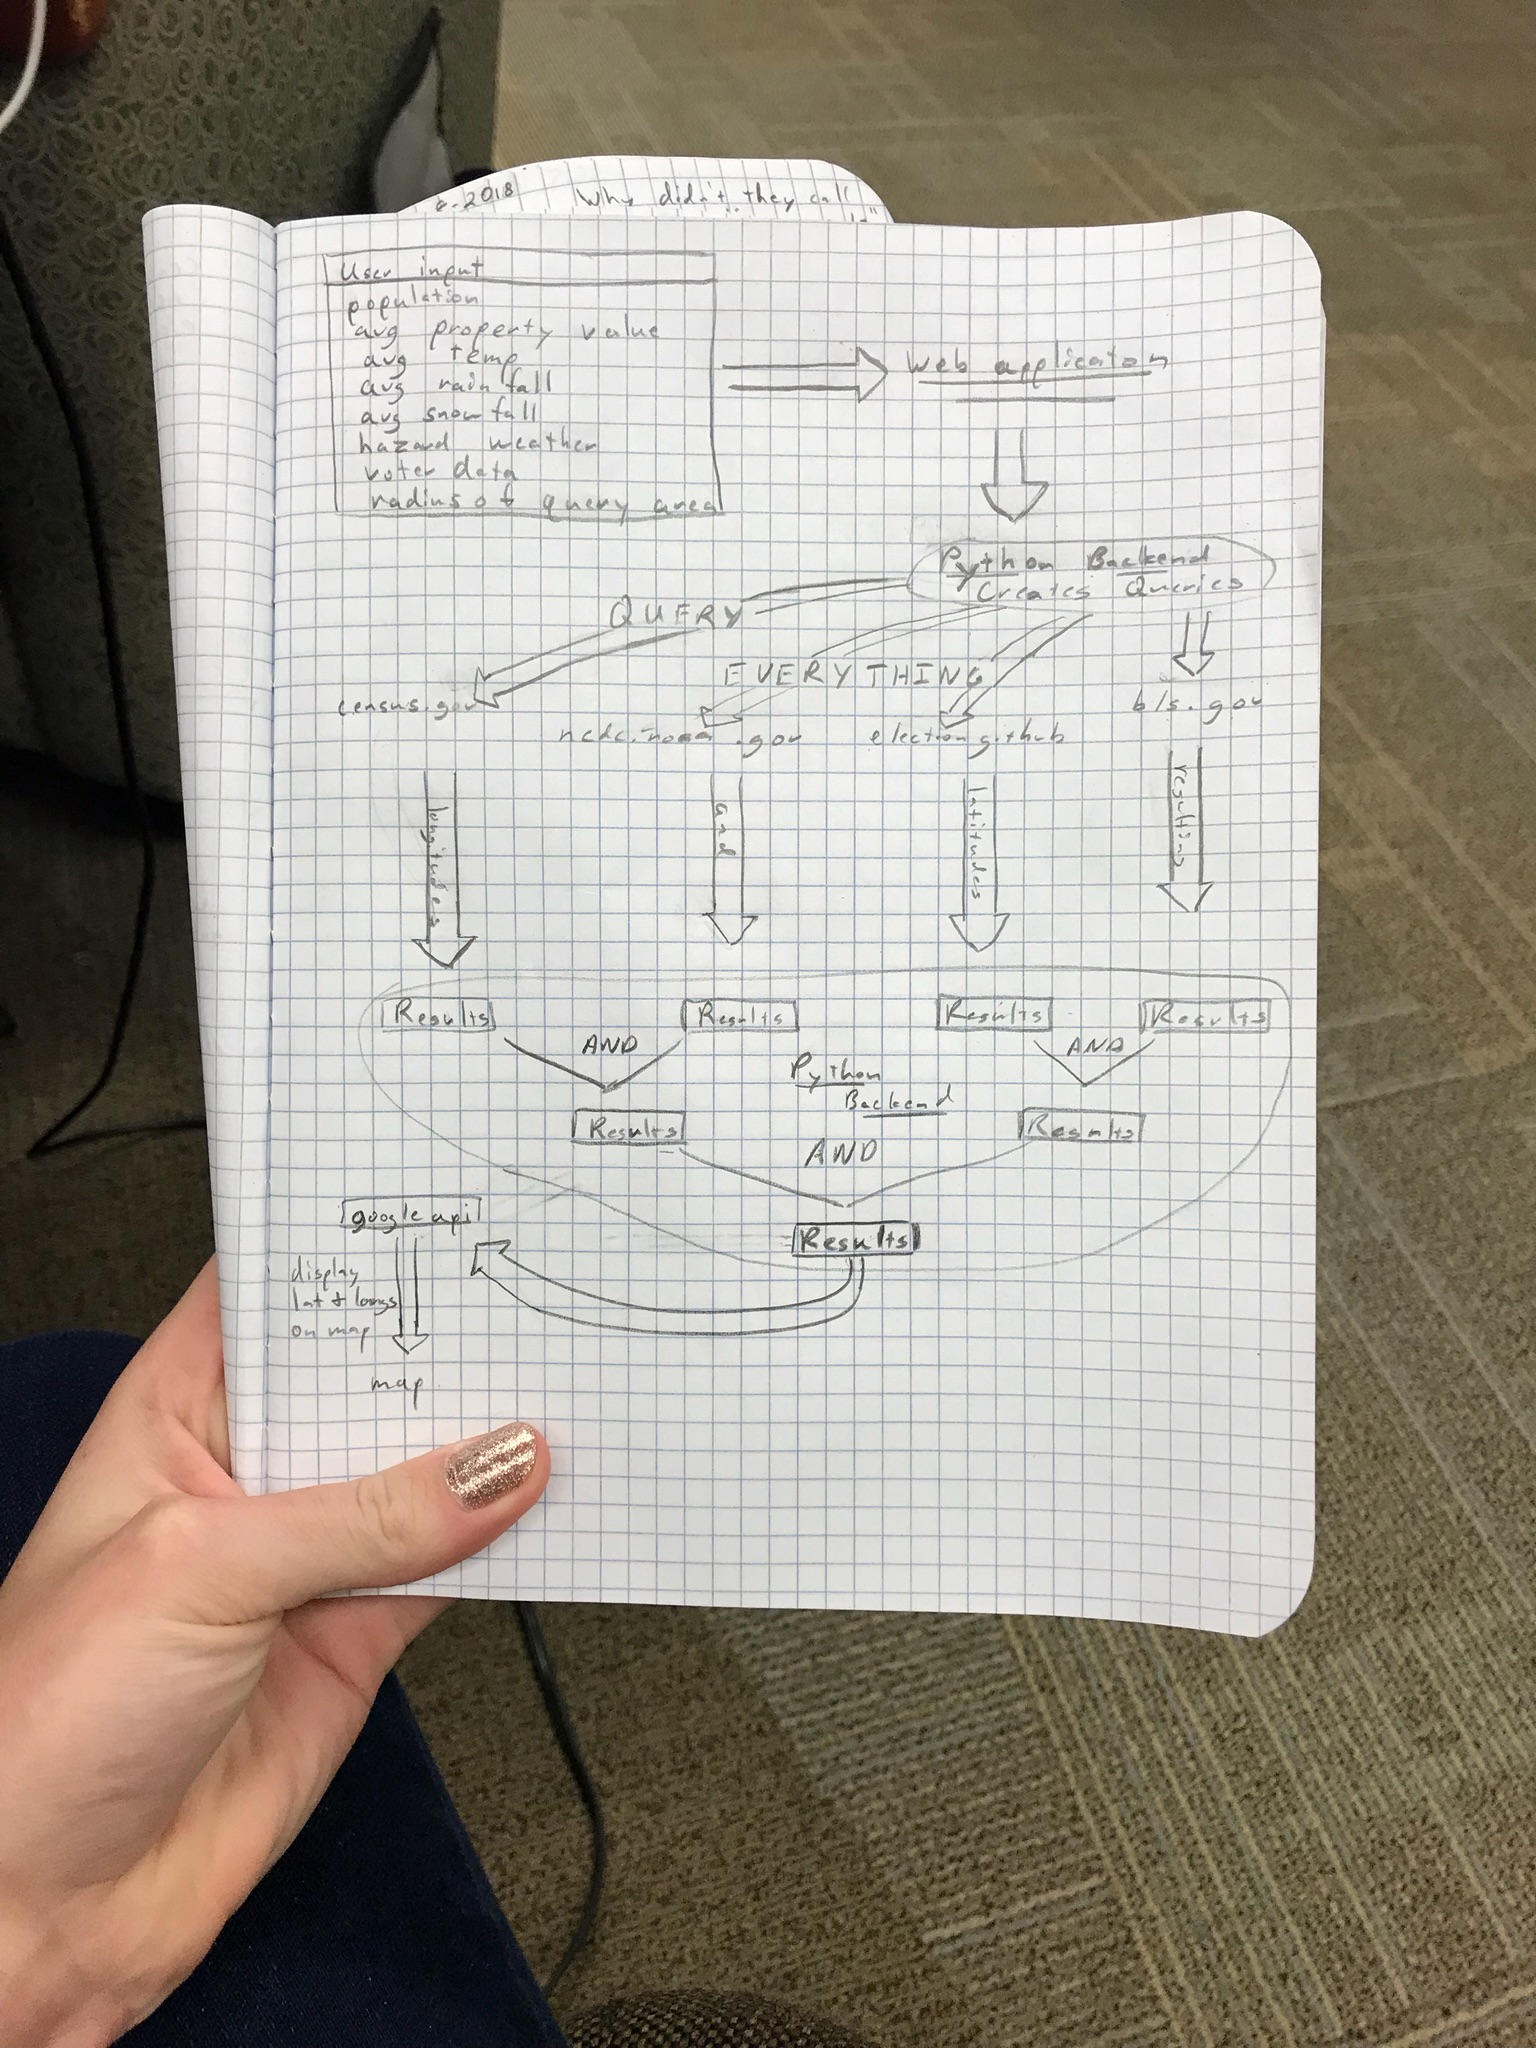 -2018 Why didn't they call
User input
population
avg property value
avg temp
avg rainfall
avg snowfall
hazard weather
voter data
radius of query area
Web applicaton
Python Backend
Creates Queries
QUERY
EVERYTHING
census.gov
ncdc.noaa.gov
election github
bls.gov
longitudes
and
latitudes
resulting
Results
Results
Results
Results
AND
AND
Python
Backend
Results
Results
AND
Results
google api
display
lat & longs
on map
map